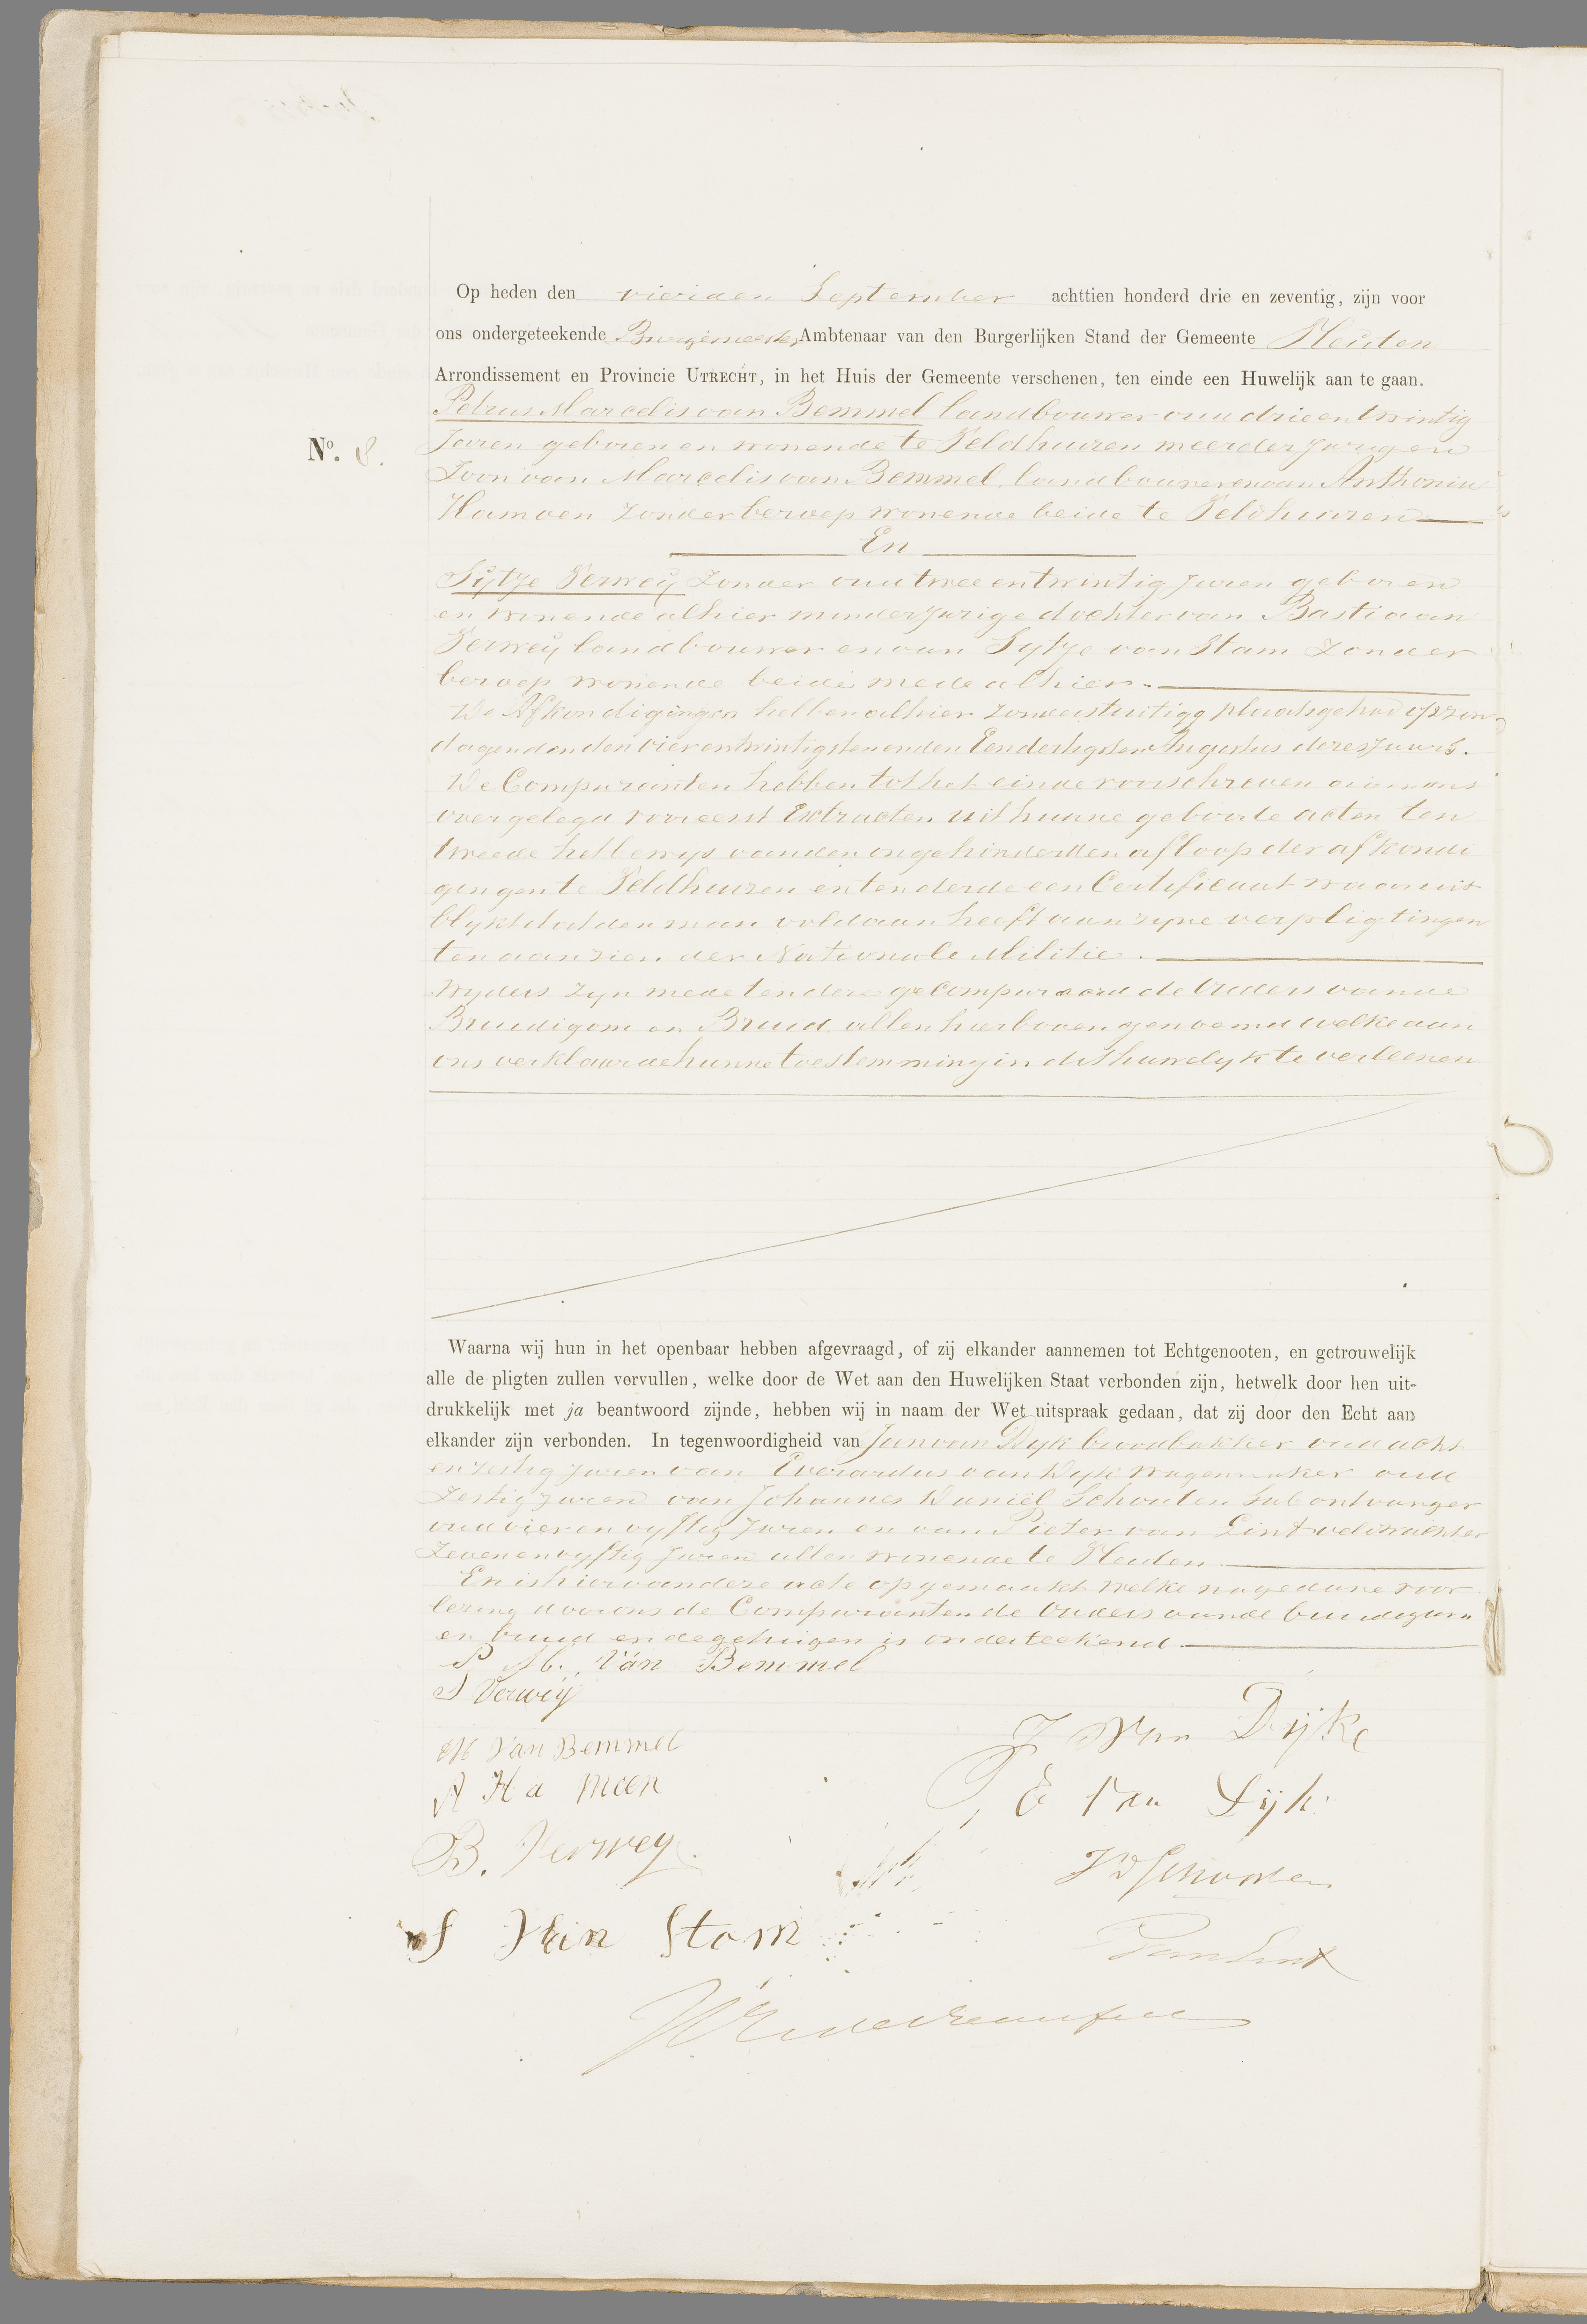 Op heden den vierden September achttien honderd drie en zeventig, zijn voor
ons ondergeteekende Burgemeester Ambtenaar van den Burgerlijken Stand der Gemeente Vleuten
Arrondissement en Provincie UTRECHT, in het Huis der Gemeente verschenen, ten einde een Huwelijk aan te gaan.
Petrus Marcelis van Bemmel landbouwer oud drieentwintig
No. 8.
Jaren geboren en wonende te Veldhuizen meerderjarigen
Zoon van Marcelis van Bemmel, landbouwer en van Anthonia
Hamoen zonder beroep wonende beide te Veldhuizen
En
Sijtje Verweij zonder oud twee entwintig jaren geboren
en wonende alhier minderjarige dochter van Bastiaan
Verweij landbouwer en van Sytje van Stam zonder
beroep wonende beide mede alhier.
De Afkondigingen hebben alhier zonder stuiting plaatsgehad op zon
dagen den den vierentwintigsten en den Eendertigsten Augustus dezes Jaars.
De Comparanten hebben tot het einde voorschreven aan ons
overgelegd vooreerst Extracten uit hunne geboorte acten ten
tweede het bewys van den ongehinderden afloop der afkondi
gingen te Veldhuizen en ten derde een Certificaat waaruit
blykt dat den man voldaan heeft aan zyne verpligtingen
ten aanzien der Nationale Militie.
Wyders zyn mede ten deze gecompareerd de Ouders van de
Bruidigom en Bruid allen hierboven genoemd welke aan
ons verklaarde hunne toestemming in dit huwelyk te verleenen
Waarna wij hun in het openbaar hebben afgevraagd, of zij elkander aannemen tot Echtgenooten, en getrouwelijk
alle de pligten zullen vervullen, welke door de Wet aan den Huwelijken Staat verbonden zijn, hetwelk door hen uit-
drukkelijk met ja beantwoord zijnde, hebben wij in naam der Wet uitspraak gedaan, dat zij door den Echt aan
elkander zijn verbonden. In tegenwoordigheid van Jan van Dyk broodbakker oud acht
en zestig jaren van Everardus van Dyk wagenmaker oud
Zestig jaren van Johannes Daniël Schouten Subontvanger
oud vier en vyftig Jaren en van Pieter van Lint veldwachter
Zevenenvyftig Jaren allen wonende te Vleuten
En is hiervan deze acte opgemaakt welke na gedane voor
lezing door ons de Comparanten de Ouders van de bruidigom
en bruid en de getuigen is onderteekend.
P M. Van Bemmel
S Verweij
M Van Bemmel
J Van Dijk
A Hamoen
E Van Dijk
B. Verwey.
J D Schouten
S Van Stam
P van Lint